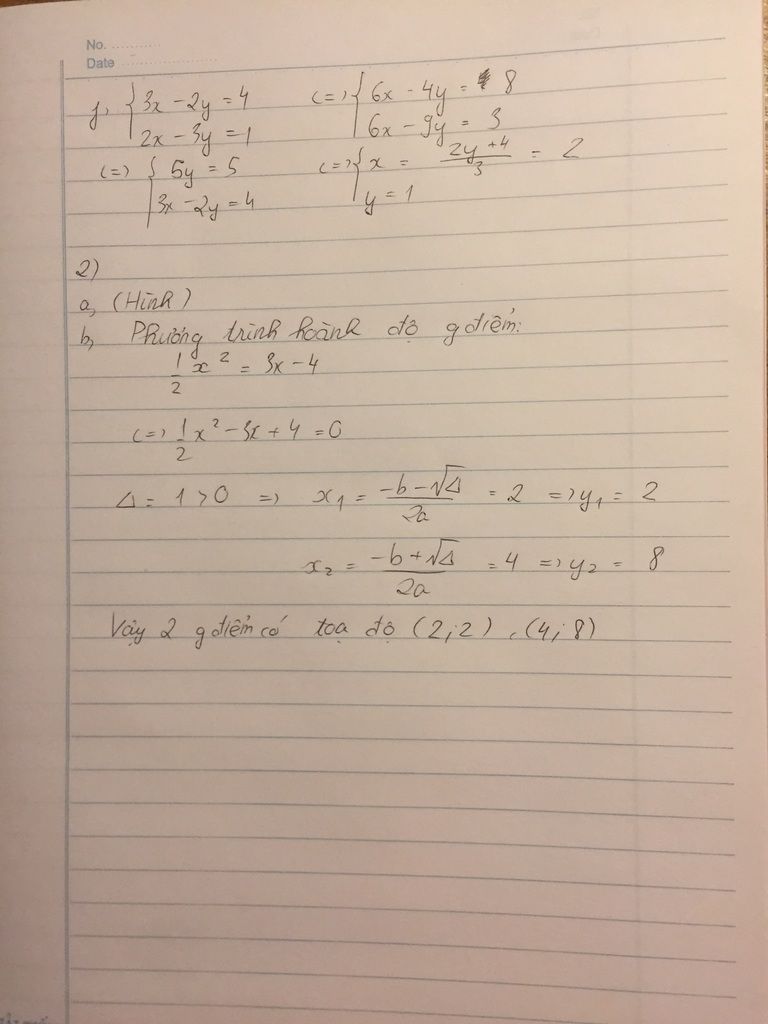 No. ............
Date ........................
j, { 3x - 2y = 4 <=> { 6x - 4y = 8
2x - 3y = 1 6x - 9y = 3
<=> { 5y = 5 <=> { x = (2y+4)/3 = 2
3x - 2y = 4 y = 1
2)
a, (Hình)
b, Phương trình hoành độ g điểm:
1/2 x² = 3x - 4
<=> 1/2 x² - 3x + 4 = 0
Δ = 1 > 0 => x₁ = (-b - √Δ)/2a = 2 => y₁ = 2
x₂ = (-b + √Δ)/2a = 4 => y₂ = 8
Vậy 2 g điểm có toạ độ (2;2), (4;8)